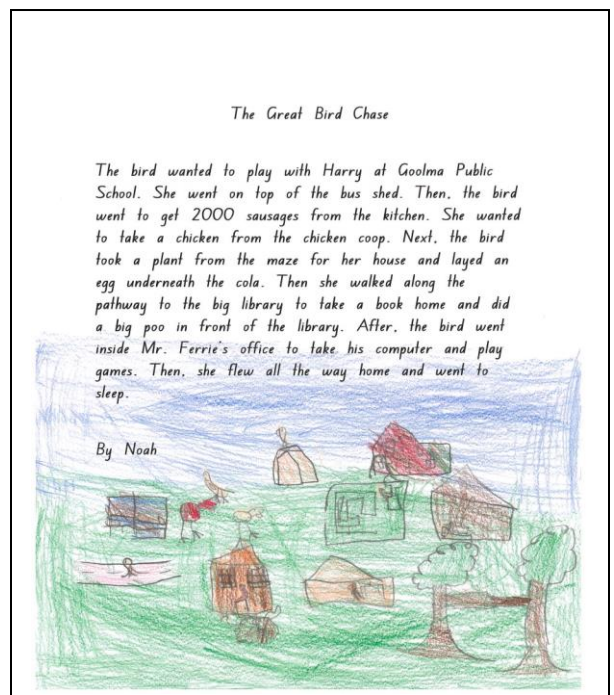 The Great Bird Chase
The bird wanted to play with Harry at Goolma Public
School. She went on top of the bus shed. Then, the bird
went to get 2000 sausages from the kitchen. She wanted
to take a chicken from the chicken coop. Next, the bird
took a plant from the maze for her house and layed an
egg underneath the cola. Then she walked along the
pathway to the big library to take a book home and did
a big poo in front of the library. After, the bird went
inside Mr. Ferrie's office to take his computer and play
games. Then, she flew all the way home and went to
sleep.
By Noah